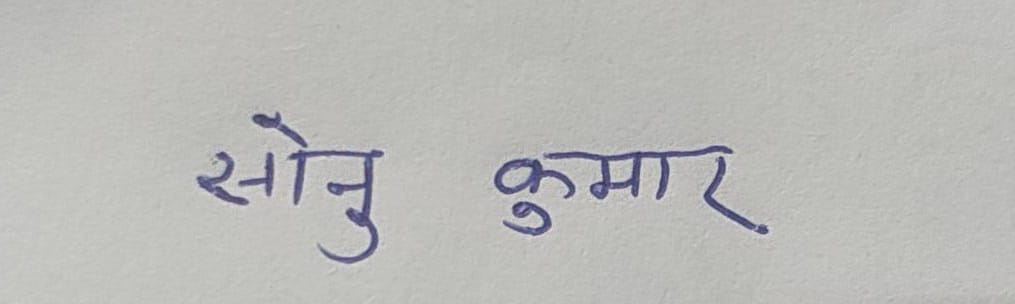 सोनु कुमार